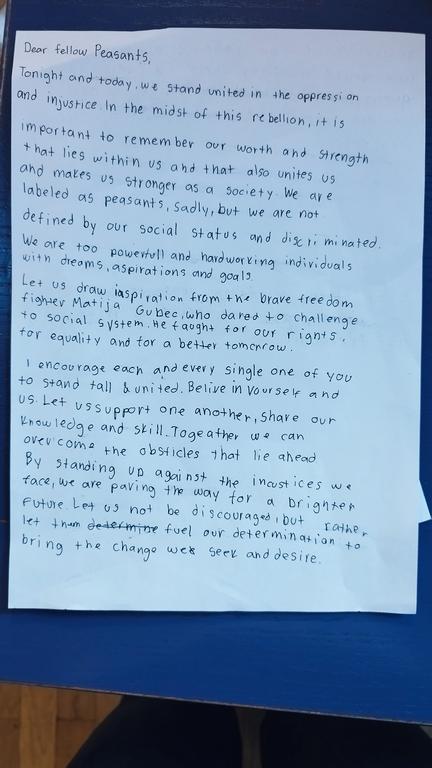 Dear fellow Peasants,
Tonight and today, we stand united in the oppression
and injustice. In the midst of this rebellion, it is
important to remember our worth and strength
that lies within us and that also unites us
and makes us stronger as a society. We are
labeled as peasants, sadly, but we are not
defined by our social status and discriminated.
We are too powerfull and hardworking individuals
with dreams, aspirations and goals.
Let us draw inspiration from the brave freedom
fighter Matija Gubec, who dared to challenge
to social system. He faught for our rights,
for equality and for a better tomorrow.
I encourage each and every single one of you
to stand tall & united. Belive in yourself and
us. Let us support one another, share our
knowledge and skill. Togeather we can
overcome the obsticles that lie ahead
By standing up against the incustices we
face, we are paving the way for a brighter
future. Let us not be discouraged, but rather
let them determine fuel our determination to
bring the change we seek and desire.